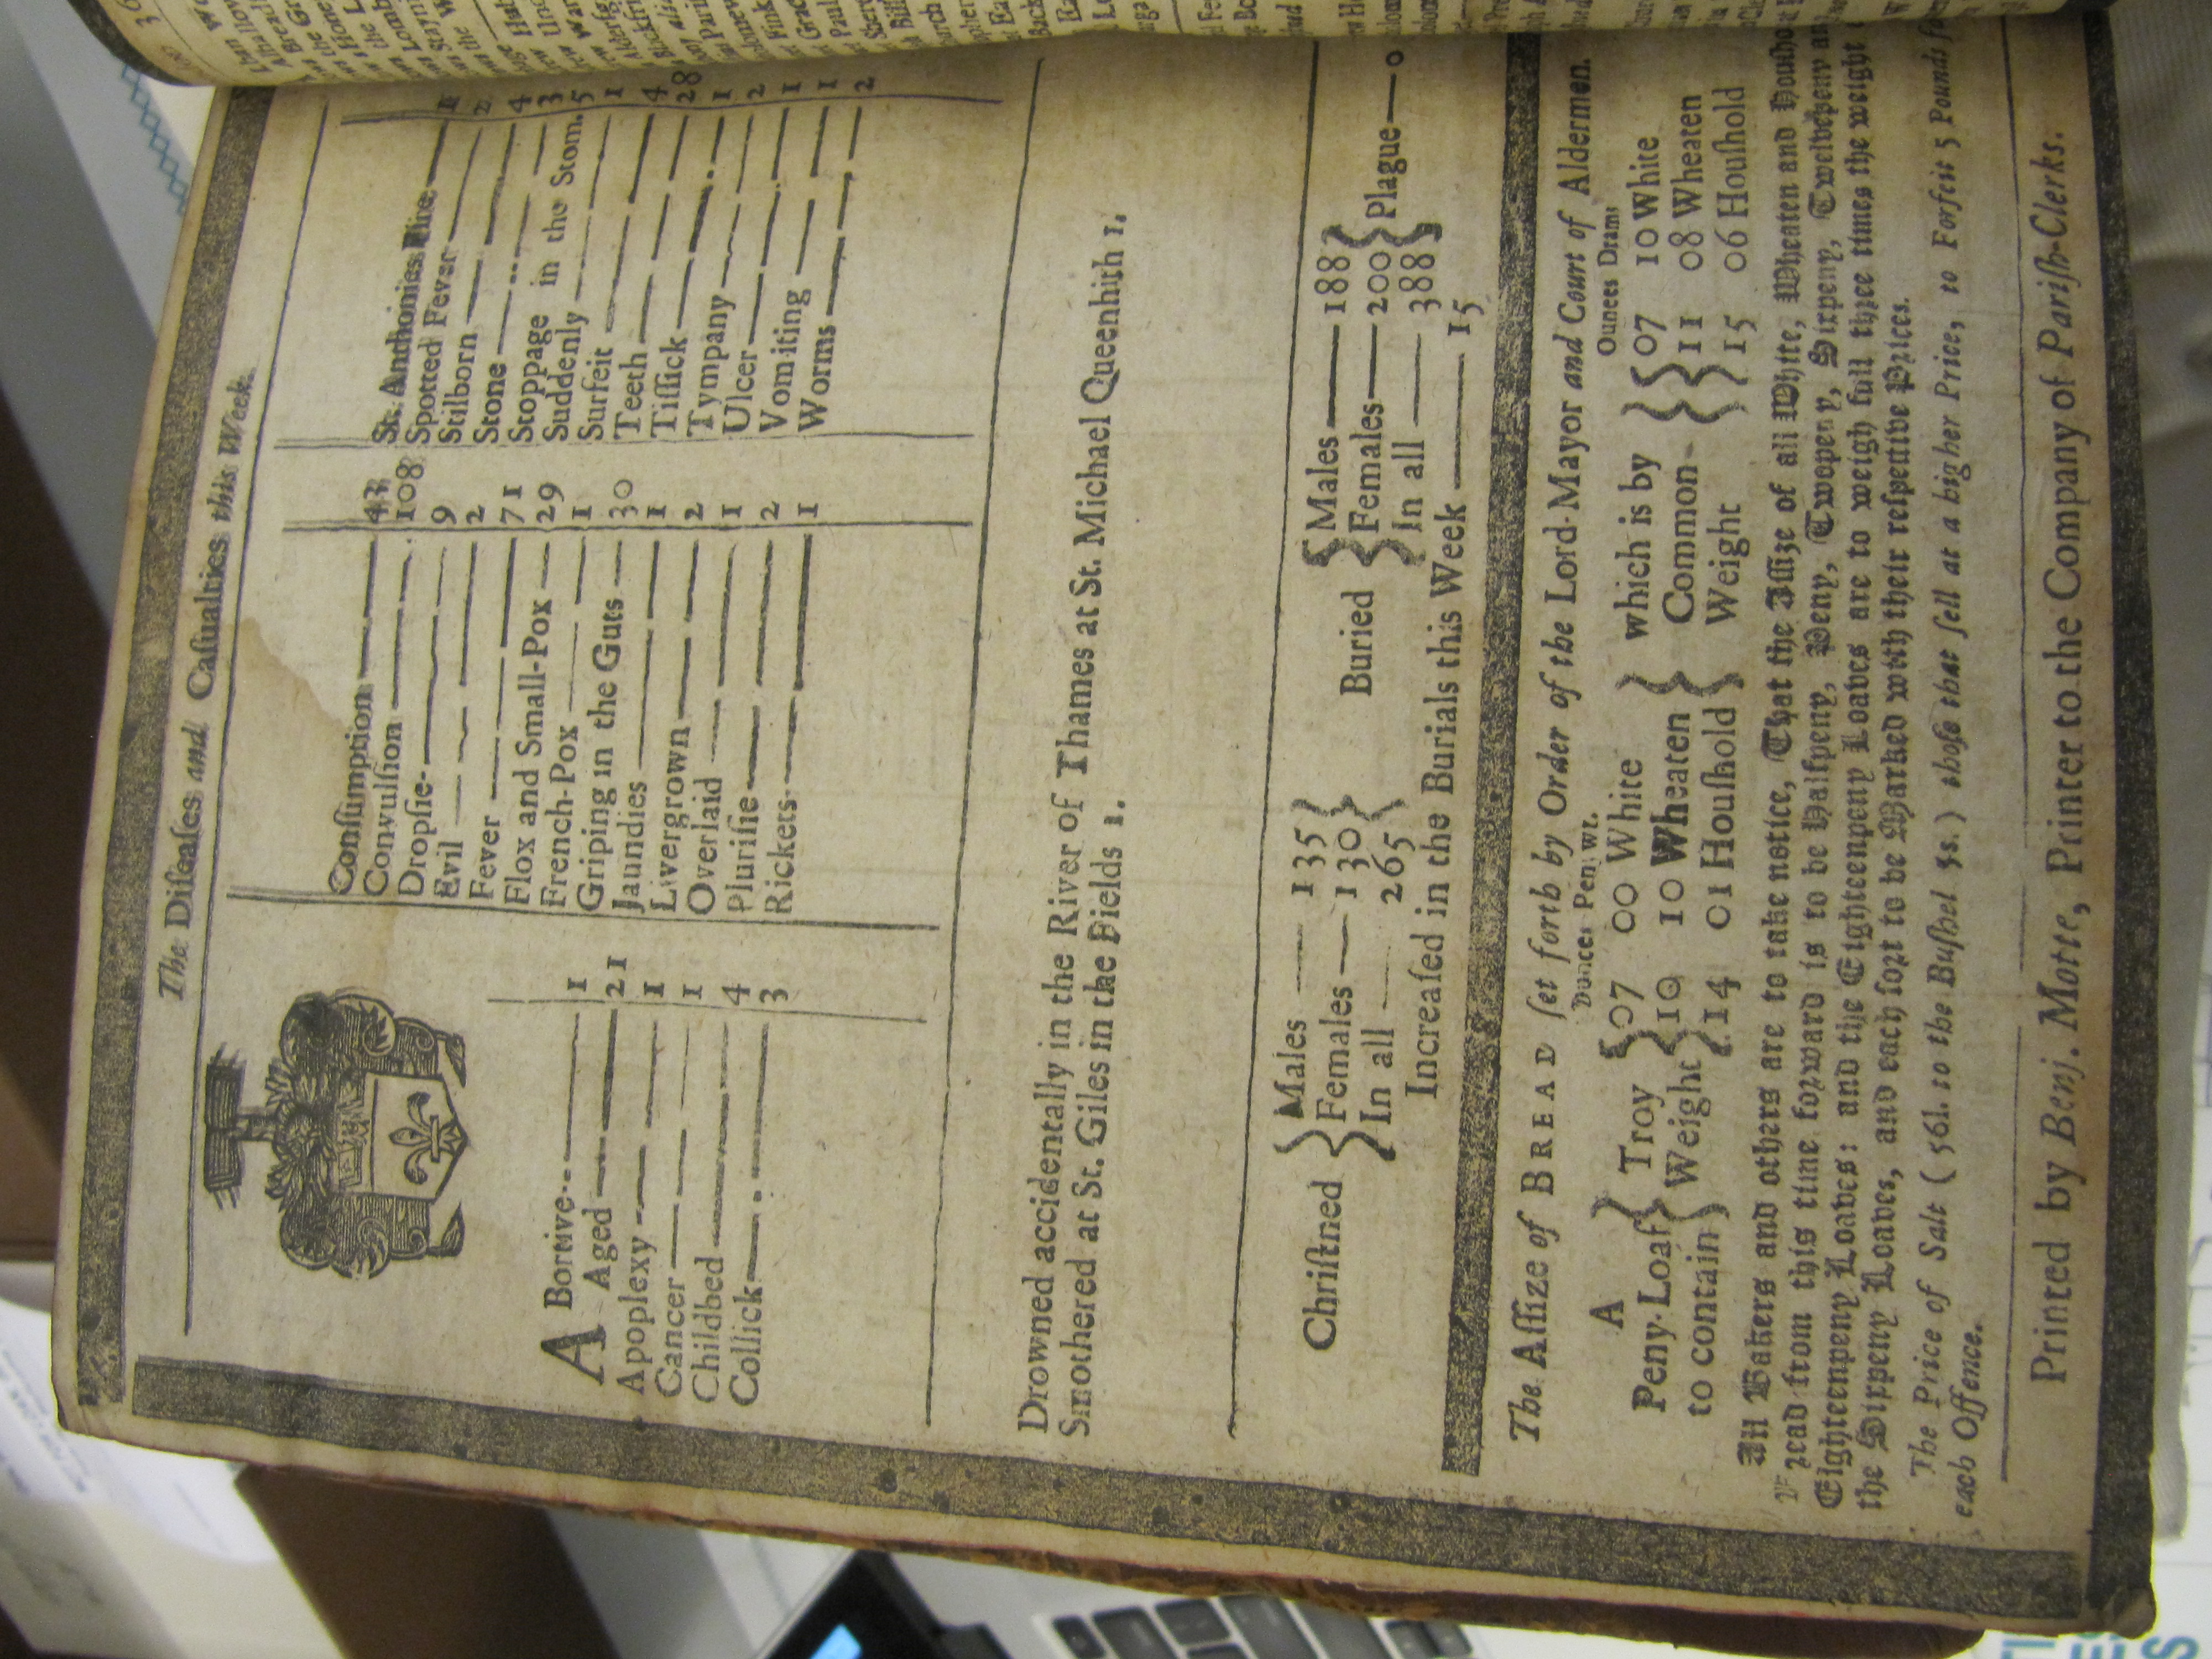 The Diſeaſes and Caſualties this Week.
A Bortive 1
Aged 21
Apoplexy 1
Cancer 1
Childbed 4
Collick 3
Conſumption 43
Convulſion 108
Dropſie 9
Evil 2
Fever 71
Flox and Small-Pox 29
French-Pox 1
Griping in the Guts 30
Jaundies 1
Livergrown 2
Overlaid 1
Pluriſie 2
Rickets 1
St. Anthonies Fire 1
Spotted Fever 2
Stilborn 4
Stone 3
Stoppage in the Stom. 5
Suddenly 1
Surfeit 4
Teeth 28
Tiſſick 1
Tympany 2
Ulcer 1
Vomiting 1
Worms 2
Drowned accidentally in the River of Thames at St. Michael Queenhith 1,
Smothered at St. Giles in the Fields 1.
Chriſtned { Males 135 Females 130 In all 265 }
Buried { Males 188 Females 200 In all 388 } Plague 0
Increaſed in the Burials this Week 15
The Aſſize of BREAD ſet forth by Order of the Lord-Mayor and Court of Aldermen.
Ounces Pen. wt. Ounces Drams
A } Troy { 07 00 White } which is by { 07 10 White
Peny-Loaf } Weight { 10 10 Wheaten } Common { 11 08 Wheaten
to contain } { 14 01 Houſhold } Weight { 15 06 Houſhold
All Bakers and others are to take notice, That the Aſſize of all White, Wheaten and Houſho
Bread from this time forward is to be Halfpeny, Peny, Twopeny, Sixpeny, Twelvepeny an
Eighteenpeny Loaves: and the Eighteenpeny Loaves are to weigh full three times the weight
the Sixpeny Loaves, and each ſort to be Marked with their reſpective Prices.
The Price of Salt (56l. to the Buſhel 5s.) thoſe that ſell at a higher Price, to Forfeit 5 Pounds for
each Offence.
Printed by Benj. Motte, Printer to the Company of Pariſh-Clerks.